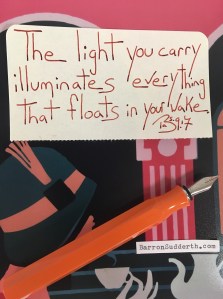 The light you carry
illuminates everything
That floats in your wake.
BarronSudderth.com